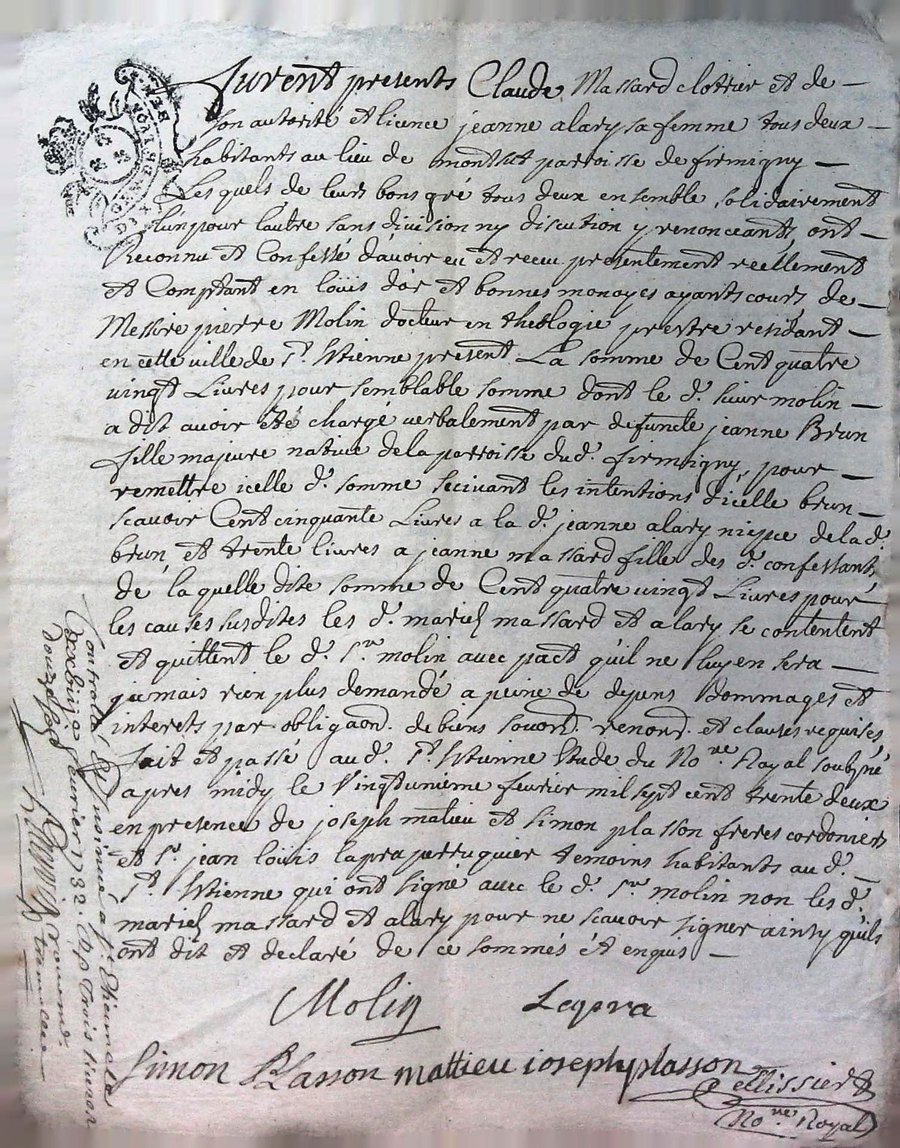 Furent presents Claude Massard clottier et de
son autorité et licence jeanne alary sa femme tous deux
habitants au lieu de parroisse de firmigny
Lesquels de leurs bons gré tous deux ensemble solidairement
lun pour lautre sans division ny discution y renonceants, ont
Reconnu et Confessé davoir eu et receu presentement reellement
et Comptant en loüis dor et bonnes monoyes ayants cours de
Messire pierre Molin docteur en theologie prestre residant
en cette ville de st. Etienne present La somme de Cent quatre
vingt Livres pour semblable somme dont le d. sieur molin
a dit avoir eté chargé verbalement par defuncte jeanne Brun
fille majeure native de la parroisse dud. firmigny, pour
remettre icelle d. somme secivant les intentions dicelle brun
scavoir Cent cinquante Livres a la d. jeanne alary niepce de la d.
brun, et trente livres a jeanne massard fille des d. confessants
de la quelle dite somme de Cent quatre vingt Livres pour
les causes susdites les d. mariés massard et alary se contentent
et quittent le d. sr. molin avec pact quil ne luy en sera
jamais rien plus demandé a peine de depens dommages et
interets par obligaond. de biens renond. et clauses requises
fait et passé aud. st. Etienne Etude du Nore. Royal soubsné
apres midy le Vingtunieme fevrier mil sept cent trente deux
en presence de joseph matieu et simon plasson freres cordoniers
et sr. jean loüis lapra perruquier temoins habitants aud.
st. Etienne qui ont signé avec le d. sr. molin non les d.
mariés massard et alary pour ne scavoir signer ainsy quils
ont dit et declaré de ce sommés et enquis
Molin Lapra
simon Plasson mattieu ioseph plasson
Pellissier
Nore. Royal
Controlé a st. Etienne le
fevrier 1732.
douze sols